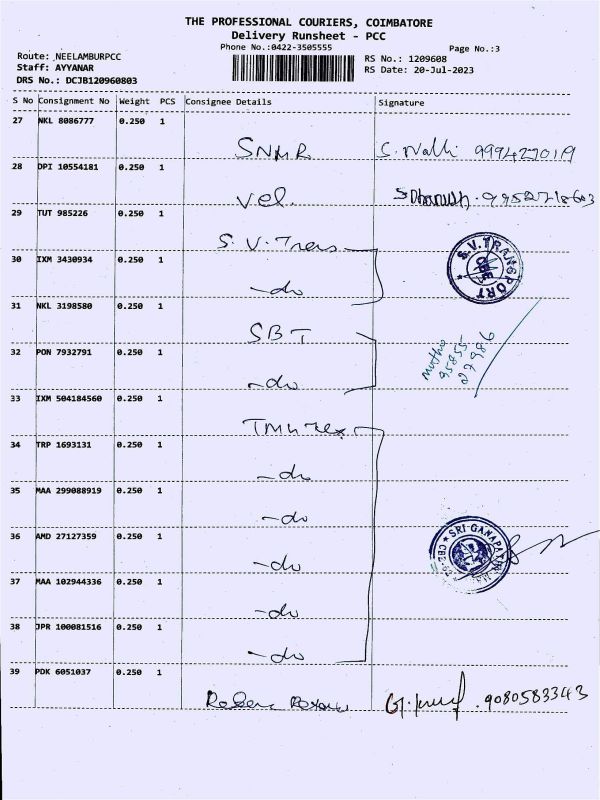 THE PROFESSIONAL COURIERS, COIMBATORE
Delivery Runsheet - PCC
Phone No.:0422-3505555
Page No.:3
Route: NEELAMBURPCC
Staff: AYYANAR
DRS No.: DCJB120960803
RS No.: 1209608
RS Date: 20-Jul-2023
S No Consignment No Weight PCS Consignee Details Signature
27 NKL 8086777 0.250 1
SNMR S. Valli 9994270119
28 DPI 10554181 0.250 1
Vel. 9952718603
29 TUT 985226 0.250 1
S.V. Trans
30 IXM 3430934 0.250 1
-do
S.V. TRANSPORT
CBE
31 NKL 3198580 0.250 1
SBT
Muthu
95855
27986
32 PON 7932791 0.250 1
-do
33 IXM 504184560 0.250 1
34 TRP 1693131 0.250 1
-do
35 MAA 299088919 0.250 1
-do
36 AMD 27127359 0.250 1
-do
SRI GANAPATHI
37 MAA 102944336 0.250 1
-do
38 JPR 100081516 0.250 1
-do
39 PDK 6051037 0.250 1
9080583343